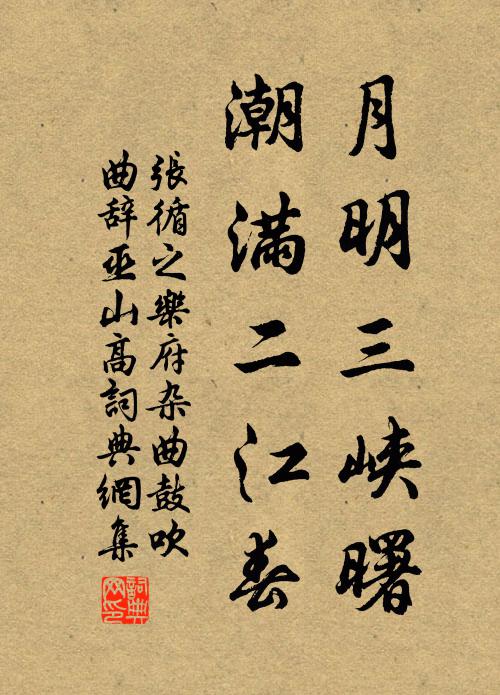 月明三峡曙
潮满二江春
張循之樂府杂曲鼓吹
曲辞巫山高詞典網集
詞典网印